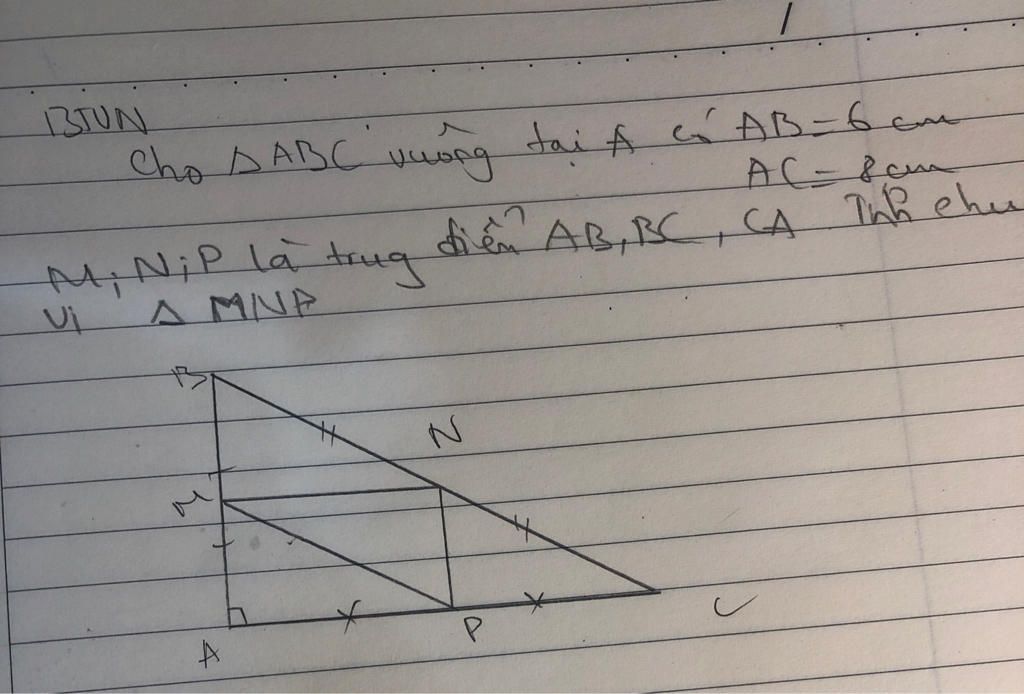 BTVN
Cho Δ ABC vuông tại A có AB = 6 cm
AC = 8 cm
M; N; P là trug điểm AB, BC, CA Tính chu
vi Δ MNP
B
N
M
A
P
C